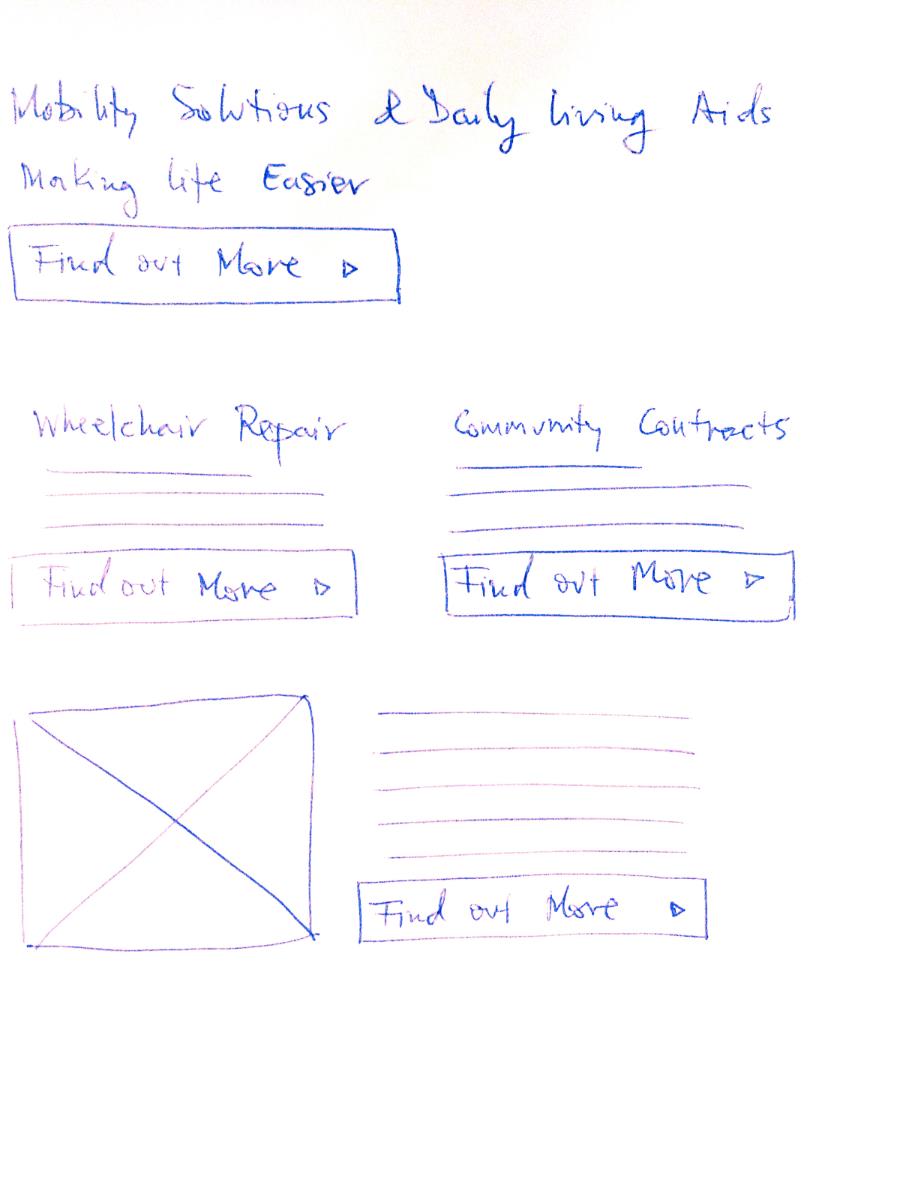 Mobility Solutions & Daily Living Aids
Making life Easier
Find out More
Wheelchair Repair
Community Contracts
Find out More
Find out More
Find out More